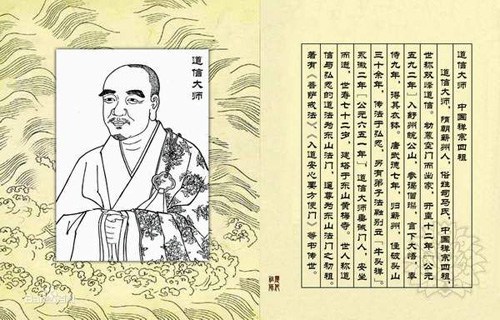 道信大师
道信大师　中国禅宗四祖
道信大师，隋朝蕲州人，俗姓司马氏，中国禅宗四祖，
世称双峰道信。幼慕空门而出家，开皇十二年（公元
五九二年）入舒州皖公山，参谒僧璨，言下大悟，奉
侍九年，得其衣钵。唐武德七年，归蕲州，住破头山
三十余年，传法于弘忍，另有弟子法融别立「牛头禅」。
永徽二年（公元六五一年），道信大师垂诫门人，安坐
而逝，世寿七十二岁，建塔于东山黄梅寺。世人称道
信与弘忍的道法为东山法门，道尊为东山法门之初祖。
著有《菩萨戒法》、《入道安心要方便门》等书传世。